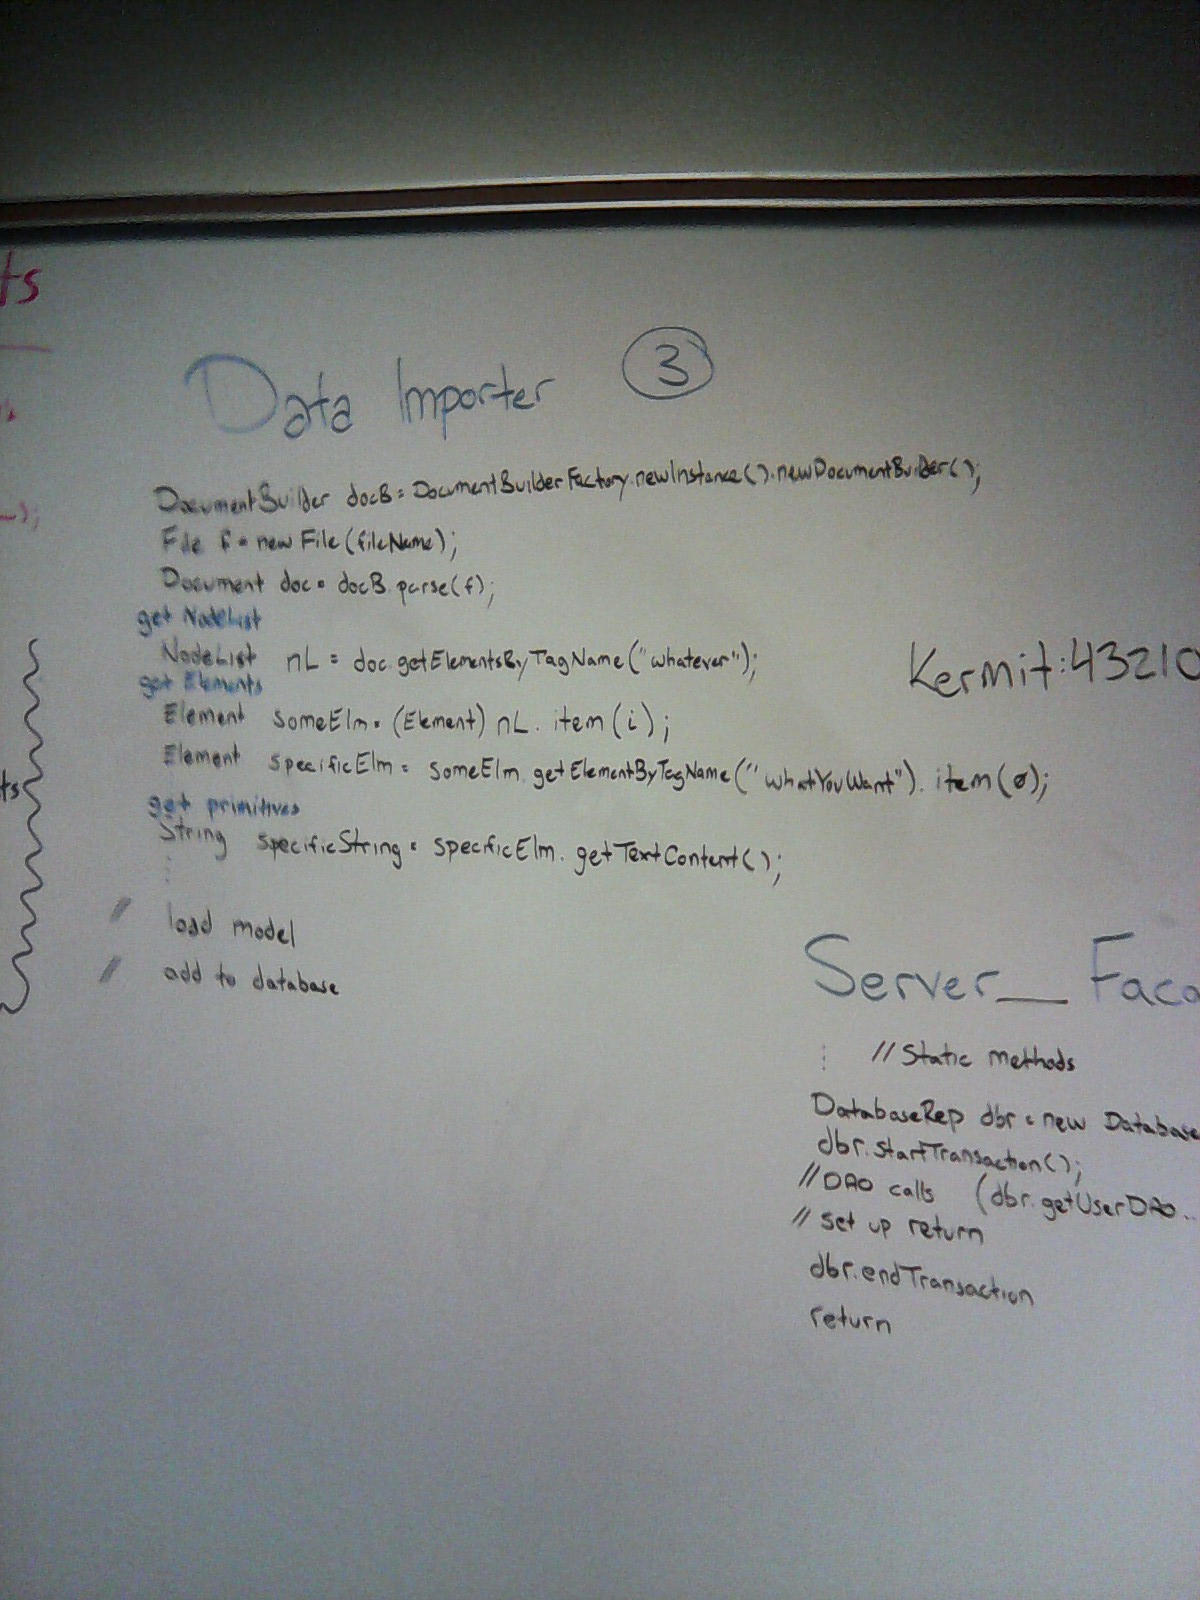 ts
Data Importer 3
DocumentBuilder docB = DocumentBuilderFactory.newInstance().newDocumentBuilder();
File f = new File(fileName);
Document doc = docB.parse(f);
get NodeList
NodeList nL = doc.getElementsByTagName("whatever");
get Elements
Element someElm = (Element) nL.item(i);
Element specificElm = someElm.getElementByTagName("whatYouWant").item(0);
get primitives
String specificString = specificElm.getTextContent();
load model
add to database
);
ts
Kermit:43210
Server_Faca
// Static methods
DatabaseRep dbr = new Database
dbr.startTransaction();
// DAO calls (dbr.getUserDAO..
// set up return
dbr.endTransaction
return